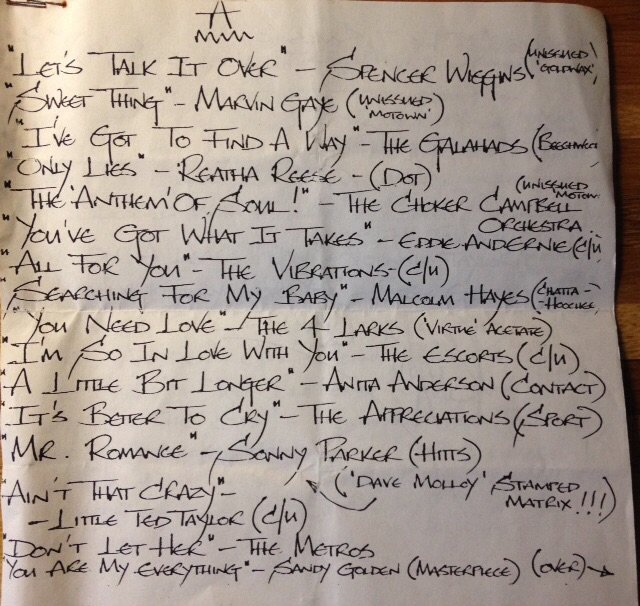 A
"Let's Talk It Over" - Spencer Wiggins (Unissued 'Goldwax')
"Sweet Thing" - Marvin Gaye (Unissued 'Motown')
"I've Got To Find A Way" - The Galahads (Beechwood
"Only Lies" - Reatha Reese - (Dot)
"The 'Anthem' Of Soul!" - The Choker Campbell Orchestra (Unissued Motown)
"You've Got What It Takes" - Eddie Andernie (C/U)
"All For You" - The Vibrations - (C/U)
"Searching For My Baby" - Malcolm Hayes (Chatta-hoochee
"You Need Love" - The 4 Larks ('Virtue' Acetate)
"I'm So In Love With You" - The Escorts (C/U)
"A Little Bit Longer" - Anita Anderson (Contact)
"It's Beter To Cry" - The Appreciations (Sport)
"Mr. Romance" - Sonny Parker (Hitts)
('Dave Molloy' Stamped Matrix!!!)
"Ain't That Crazy" -
- Little Ted Taylor (C/U)
"Don't Let Her" - The Metros
"You Are My Everything" - Sandy Golden (Masterpiece) (Over) →